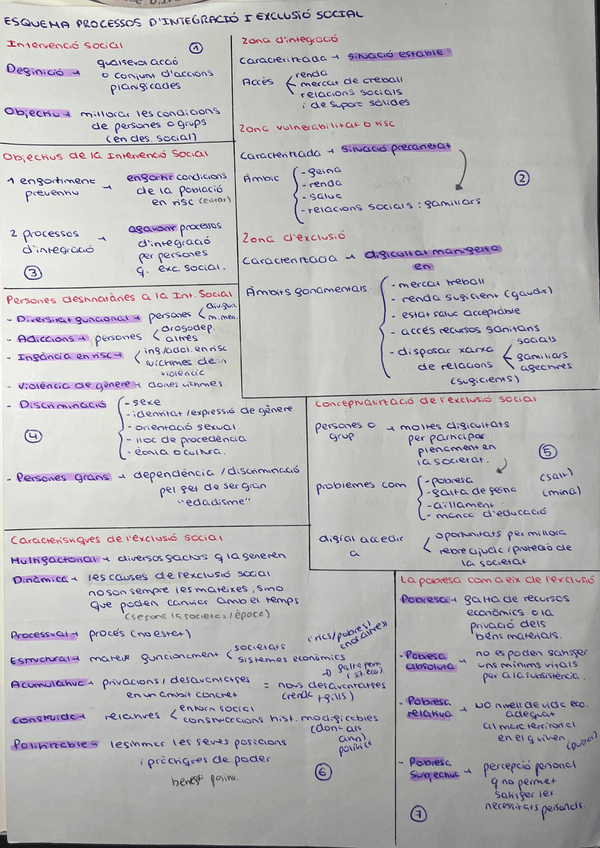 ESQUEMA PROCESSOS D'INTEGRACIÓ I EXCLUSIÓ SOCIAL
Intervenció social
①
Definició → qualsevol acció
o conjunt d'accions
planificades
Objectiu → millorar les condicions
de persones o grups
(en des. social)
Zona d'integració
Caracteritzada → situació estable.
Accés
renda
mercat de treball
relacions socials
i de suport sòlides
Zona vulnerabilitat o risc
Caracteritzada → situació precarietat
②
Àmbit
- feina
- renda
- salut
- relacions socials: familiars
Zona d'exclusió
Caracteritzada → dificultat manifesta
en
Àmbits fonamentals
- mercat treball
- renda suficient (gaudir)
- estat salut acceptable
- accés recursos sanitaris
- disposar xarxa
de relacions
(suficients)
socials
familiars
afectives
Objectius de la Intervenció Social
1 enfortiment
preventiu → enfortir condicions
de la població
en risc (evitar)
2 processos
d'integració → afavorir processos
d'integració
per persones
q. exc. social.
③
Persones destinatàries a la Int. Social
- Diversitat funcional → persones
- Adiccions → persones
drogodep.
altres
- Infància en risc →
inf/adol. en risc
víctimes de
violència
- Violència de gènere → dones víctimes
- Discriminació
- sexe
- identitat/expressió de gènere
- orientació sexual
- lloc de procedència
- ètnia o cultura.
④
- Persones grans → dependència / discriminació
pel fet de ser gran
"edadisme"
Conceptualització de l'exclusió social
persones o
grup → moltes dificultats
per participar
plenament en
la societat.
⑤
problemes com
- pobresa
- falta de feina
- aïllament
- manca d'educació
difícil accedir
a
oportunitats per millora
rebre ajuda/protecció de
la societat
Característiques de l'exclusió social
Multifactorial → diversos factors q la generen
Dinàmica → les causes de l'exclusió social
no son sempre les mateixes, sino
que poden canviar amb el temps
(segons la societat/època)
Processual → procés (no estat)
Estructural → mateix funcionament
societats
sistemes econòmics
Acumulativa → privacions / desavantatges
en un àmbit concret
= nous desavantatges
Construïda → relatives
entorn social
construccions hist. modificables
Polititzable → legitimar les seves posicions
i pràctiques de poder
⑥
La pobresa com a eix de l'exclusió
Pobresa → falta de recursos
econòmics o la
privació dels
béns materials.
- Pobresa
absoluta → no es poden satisfer
uns mínims vitals
per a la subsistència.
- Pobresa
relativa → no nivell de vida eco.
adequat
al marc territorial
en el q viven
- Pobresa
Subjectiva → percepció personal
q no permet
satisfer les
necessitats personals.
⑦